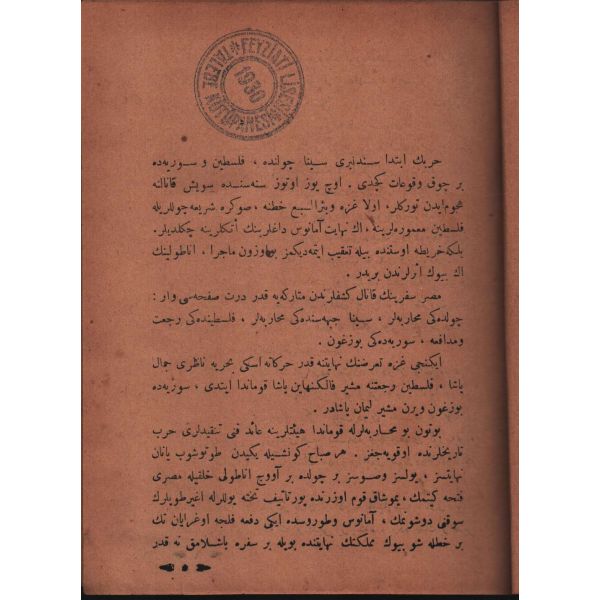 ★ FEYZİATİ LİSESİ ★ TALEBE KÜTÜPANESİ
1930
حربك ابتدا سنه‌سندنبری سینا چولنده ، فلسطین و سوریه‌ده
بر چوق وقوعات كچدی . اوچ یوز اوتوز سنه‌سنده سویش قانالنه
هجوم ایدن توركلر ، اولا غزه وبئرالسبع خطنه ، صوكره شریعه چوللریله
فلسطین معموره‌لرینه ، اك نهایت آمانوس داغلرینك أتكلرینه چكلدیلر .
بلكه خریطه اوستنده بیله تعقیب ایتمه‌دیكمز بو اوزون ماجرا ، اناطولینك
اك بیوك أثرلرندن بریدر .
مصر سفرینك قانال كشفلرندن متاركه‌یه قدر درت صفحه‌سی وار :
چولده‌كی محاربه‌لر ، سینا جبهه‌سنده‌كی محاربه‌لر ، فلسطینده‌كی رجعت
ومدافعه ، سوریه‌ده‌كی بوزغون .
ایكنجی غزه تعرضنك نهایتنه قدر حركاته اسكی بحریه ناظری جمال
پاشا ، فلسطین رجعتنه مشیر فالكنهاین پاشا قوماندا ایتدی ، سوریه‌ده
بوزغون ویرن مشیر لیمان پاشادر .
بوتون بو محاربه‌لرله قوماندا هیئتلرینه عائد فنی تنقیدلری حرب
تاریخلرنده اوقویه‌جغز . هر صباح كونشیله یكیدن طوتوشوب یانان
نهایتسز ، یولسز وصوسز بر چولده بر آووچ اناطولی خلقیله مصری
فتحه كیتمك ، یموشاق قوم اوزرنده پورتاتیف تخته یوللرله اغیر طوپلرك
سوقنی دوشونمك ، آمانوس وطوروسده ایكی دفعه فلجه اوغرایان تك
بر خطله شو بیوك مملكتك نهایتنده بویله بر سفره باشلامق نه قدر
٥